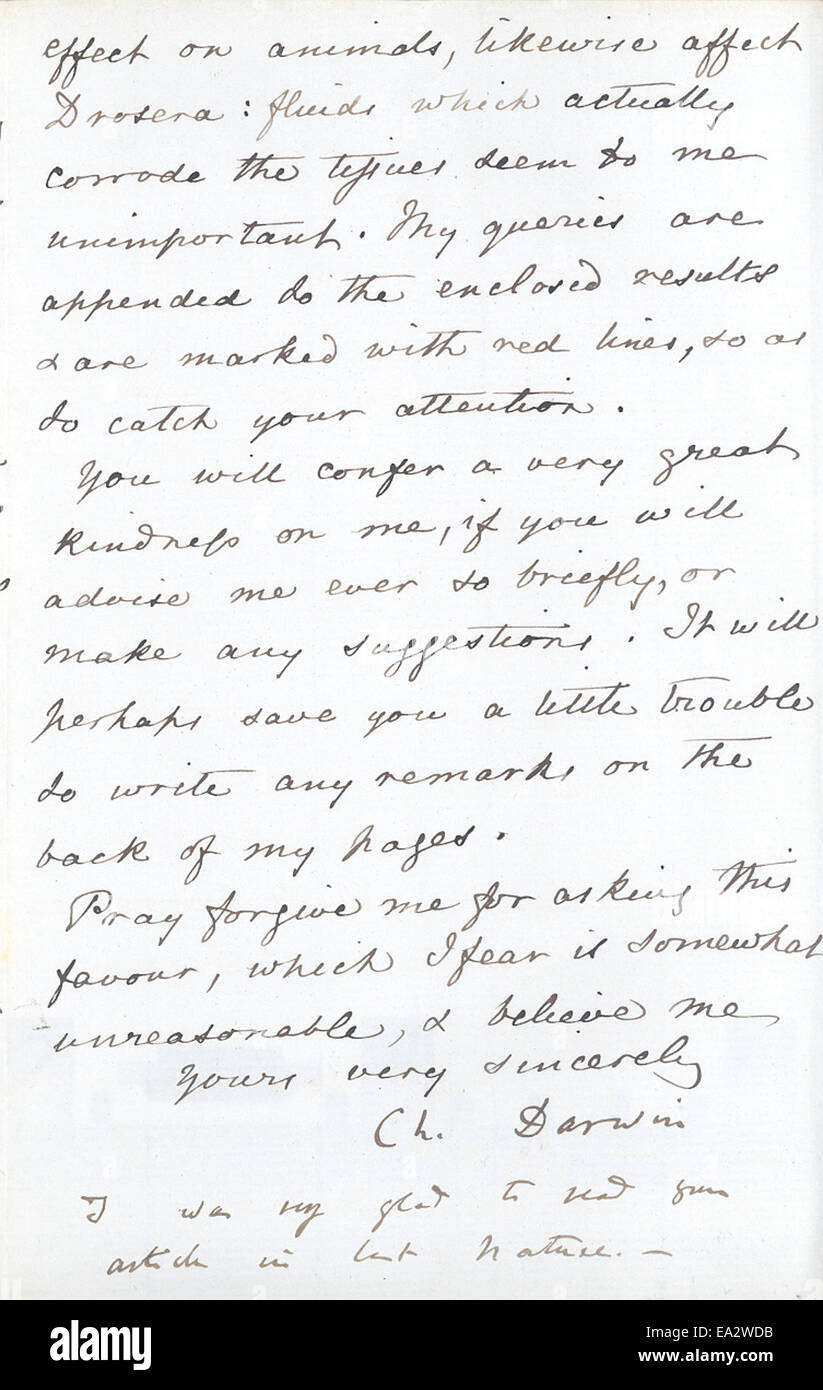 effect on animals, likewise affect
Drosera : fluids which actually
corrode the tissues seem to me
unimportant. My queries are
appended to the enclosed results
& are marked with red lines, so as
to catch your attention.
You will confer a very great
kindness on me, if you will
advise me ever so briefly, or
make any suggestions. It will
perhaps save you a little trouble
to write any remarks on the
back of my pages.
Pray forgive me for asking this
favour, which I fear is somewhat
unreasonable, & believe me
Yours very sincerely
Ch. Darwin
I was very glad to read your
article in last Nature. —
alamy stock photo
EA2WDB
www.alamy.com